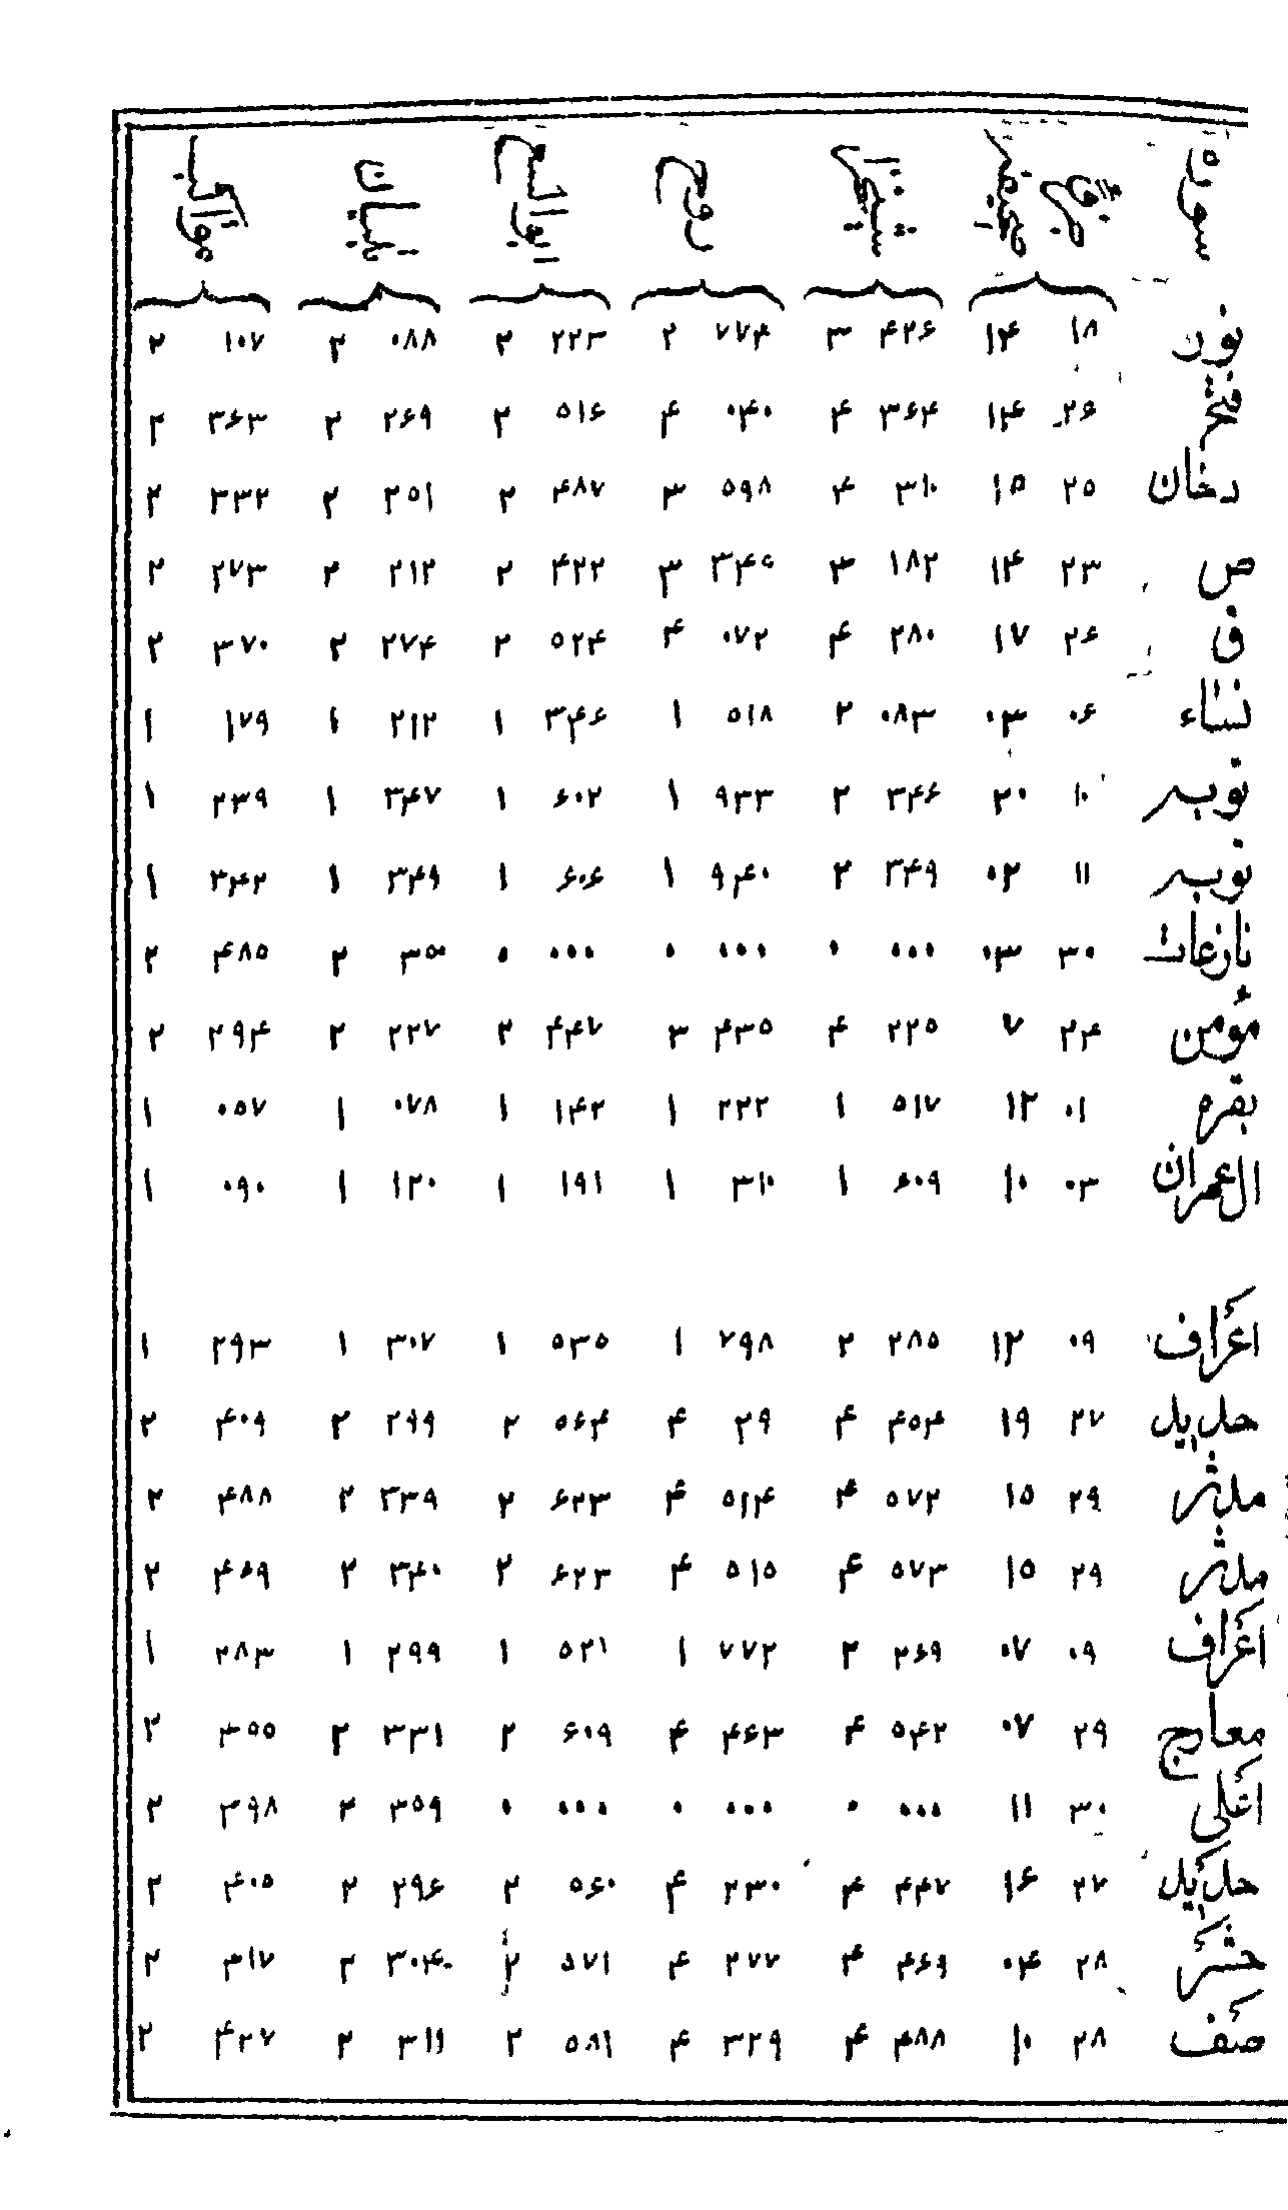 سوره
نور ۱۸ ۱۴ ۴۲۶ ۳ ۷۷۴ ۲ ۲۲۳ ۲ ۰۸۸ ۲ ۱۰۷ ۲
فتح ۲۶ ۱۴ ۳۶۴ ۴ ۰۴۰ ۴ ۵۱۶ ۲ ۲۶۹ ۲ ۳۶۳ ۲
دخان ۲۵ ۱۵ ۳۱۰ ۴ ۵۹۸ ۳ ۴۸۷ ۲ ۲۵۱ ۲ ۳۳۲ ۲
ص ۲۳ ۱۴ ۱۸۲ ۳ ۳۴۰ ۳ ۴۲۲ ۲ ۲۱۲ ۲ ۲۷۳ ۲
ق ۲۶ ۱۷ ۲۸۰ ۴ ۰۷۲ ۴ ۵۲۴ ۲ ۲۷۴ ۲ ۳۷۰ ۲
نساء ۰۶ ۰۳ ۰۸۳ ۲ ۵۱۸ ۱ ۳۴۶ ۱ ۲۱۲ ۱ ۱۷۹ ۱
توبه ۱۰ ۲۰ ۳۴۶ ۲ ۹۳۳ ۱ ۶۰۲ ۱ ۳۴۷ ۱ ۲۳۹ ۱
توبه ۱۱ ۰۲ ۳۴۹ ۲ ۹۴۰ ۱ ۶۰۶ ۱ ۳۴۹ ۱ ۳۴۲ ۱
نازعات ۳۰ ۰۳ ۰۰۰ ۰ ۰۰۰ ۰ ۰۰۰ ۰ ۳۵۰ ۲ ۴۸۵ ۲
مؤمن ۲۴ ۷ ۲۲۵ ۴ ۴۳۵ ۳ ۴۴۷ ۲ ۲۲۷ ۲ ۲۹۴ ۲
بقره ۰۱ ۱۲ ۵۱۷ ۱ ۲۲۲ ۱ ۱۴۲ ۱ ۰۷۸ ۱ ۰۵۷ ۱
ال عمران ۰۳ ۱۰ ۶۰۹ ۱ ۳۱۰ ۱ ۱۹۱ ۱ ۱۲۰ ۱ ۰۹۰ ۱
اعراف ۰۹ ۱۲ ۲۸۵ ۲ ۷۹۸ ۱ ۵۳۵ ۱ ۳۰۷ ۱ ۲۹۳ ۱
حدید ۲۷ ۱۹ ۴۵۴ ۴ ۲۹ ۴ ۵۶۴ ۲ ۲۹۹ ۲ ۴۰۹ ۲
مدثر ۲۹ ۱۵ ۵۷۲ ۴ ۵۱۴ ۴ ۶۲۳ ۲ ۳۳۹ ۲ ۴۸۸ ۲
مدثر ۲۹ ۱۵ ۵۷۳ ۴ ۵۱۵ ۴ ۶۲۳ ۲ ۳۴۰ ۲ ۴۶۹ ۲
اعراف ۰۹ ۰۷ ۲۶۹ ۲ ۷۷۲ ۱ ۵۲۱ ۱ ۲۹۹ ۱ ۲۸۳ ۱
معارج ۲۹ ۰۷ ۵۴۲ ۴ ۴۶۳ ۴ ۶۰۹ ۲ ۳۳۱ ۲ ۳۵۵ ۲
اعلی ۳۰ ۱۱ ۰۰۰ ۰ ۰۰۰ ۰ ۰۰۰ ۰ ۳۵۹ ۲ ۳۹۸ ۲
حدید ۲۷ ۱۶ ۴۴۷ ۴ ۲۳۰ ۴ ۵۶۰ ۲ ۲۹۶ ۲ ۴۰۵ ۲
حشر ۲۸ ۰۴ ۴۶۹ ۴ ۲۷۷ ۴ ۵۷۱ ۲ ۳۰۴ ۲ ۳۱۷ ۲
صف ۲۸ ۱۰ ۴۸۸ ۴ ۳۲۹ ۴ ۵۸۱ ۲ ۳۱۱ ۲ ۴۲۷ ۲